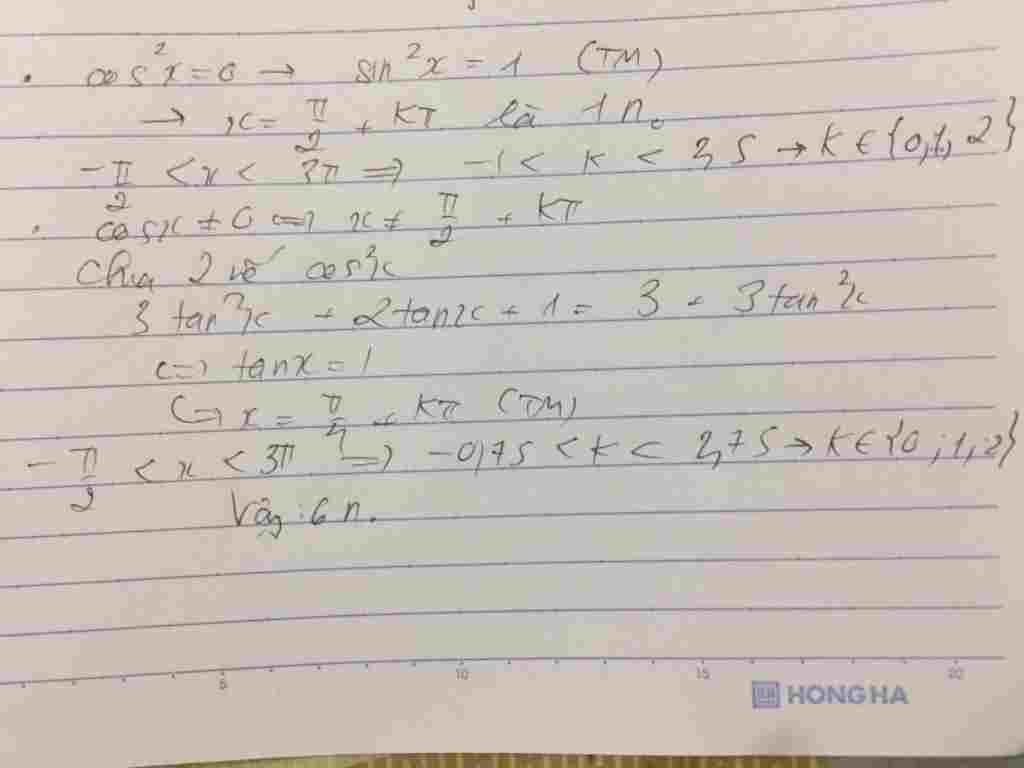 . cos²x = 0 → sin²x = 1 (TM)
→ x = π/2 + Kπ là 1 n₀
-π/2 < x < 3π => -1 < K < 2,5 → K ∈ {0, 1, 2}
. cosx ≠ 0 <=> x ≠ π/2 + Kπ
Chia 2 vế cos²x
3 tan²x + 2tanx + 1 = 3 + 3tan²x
<=> tanx = 1
<=> x = π/4 + Kπ (TM)
-π/2 < x < 3π => -0,75 < K < 2,75 → K ∈ {0; 1, 2}
Vậy : 6 n.
5 10 15 20
HONG HA